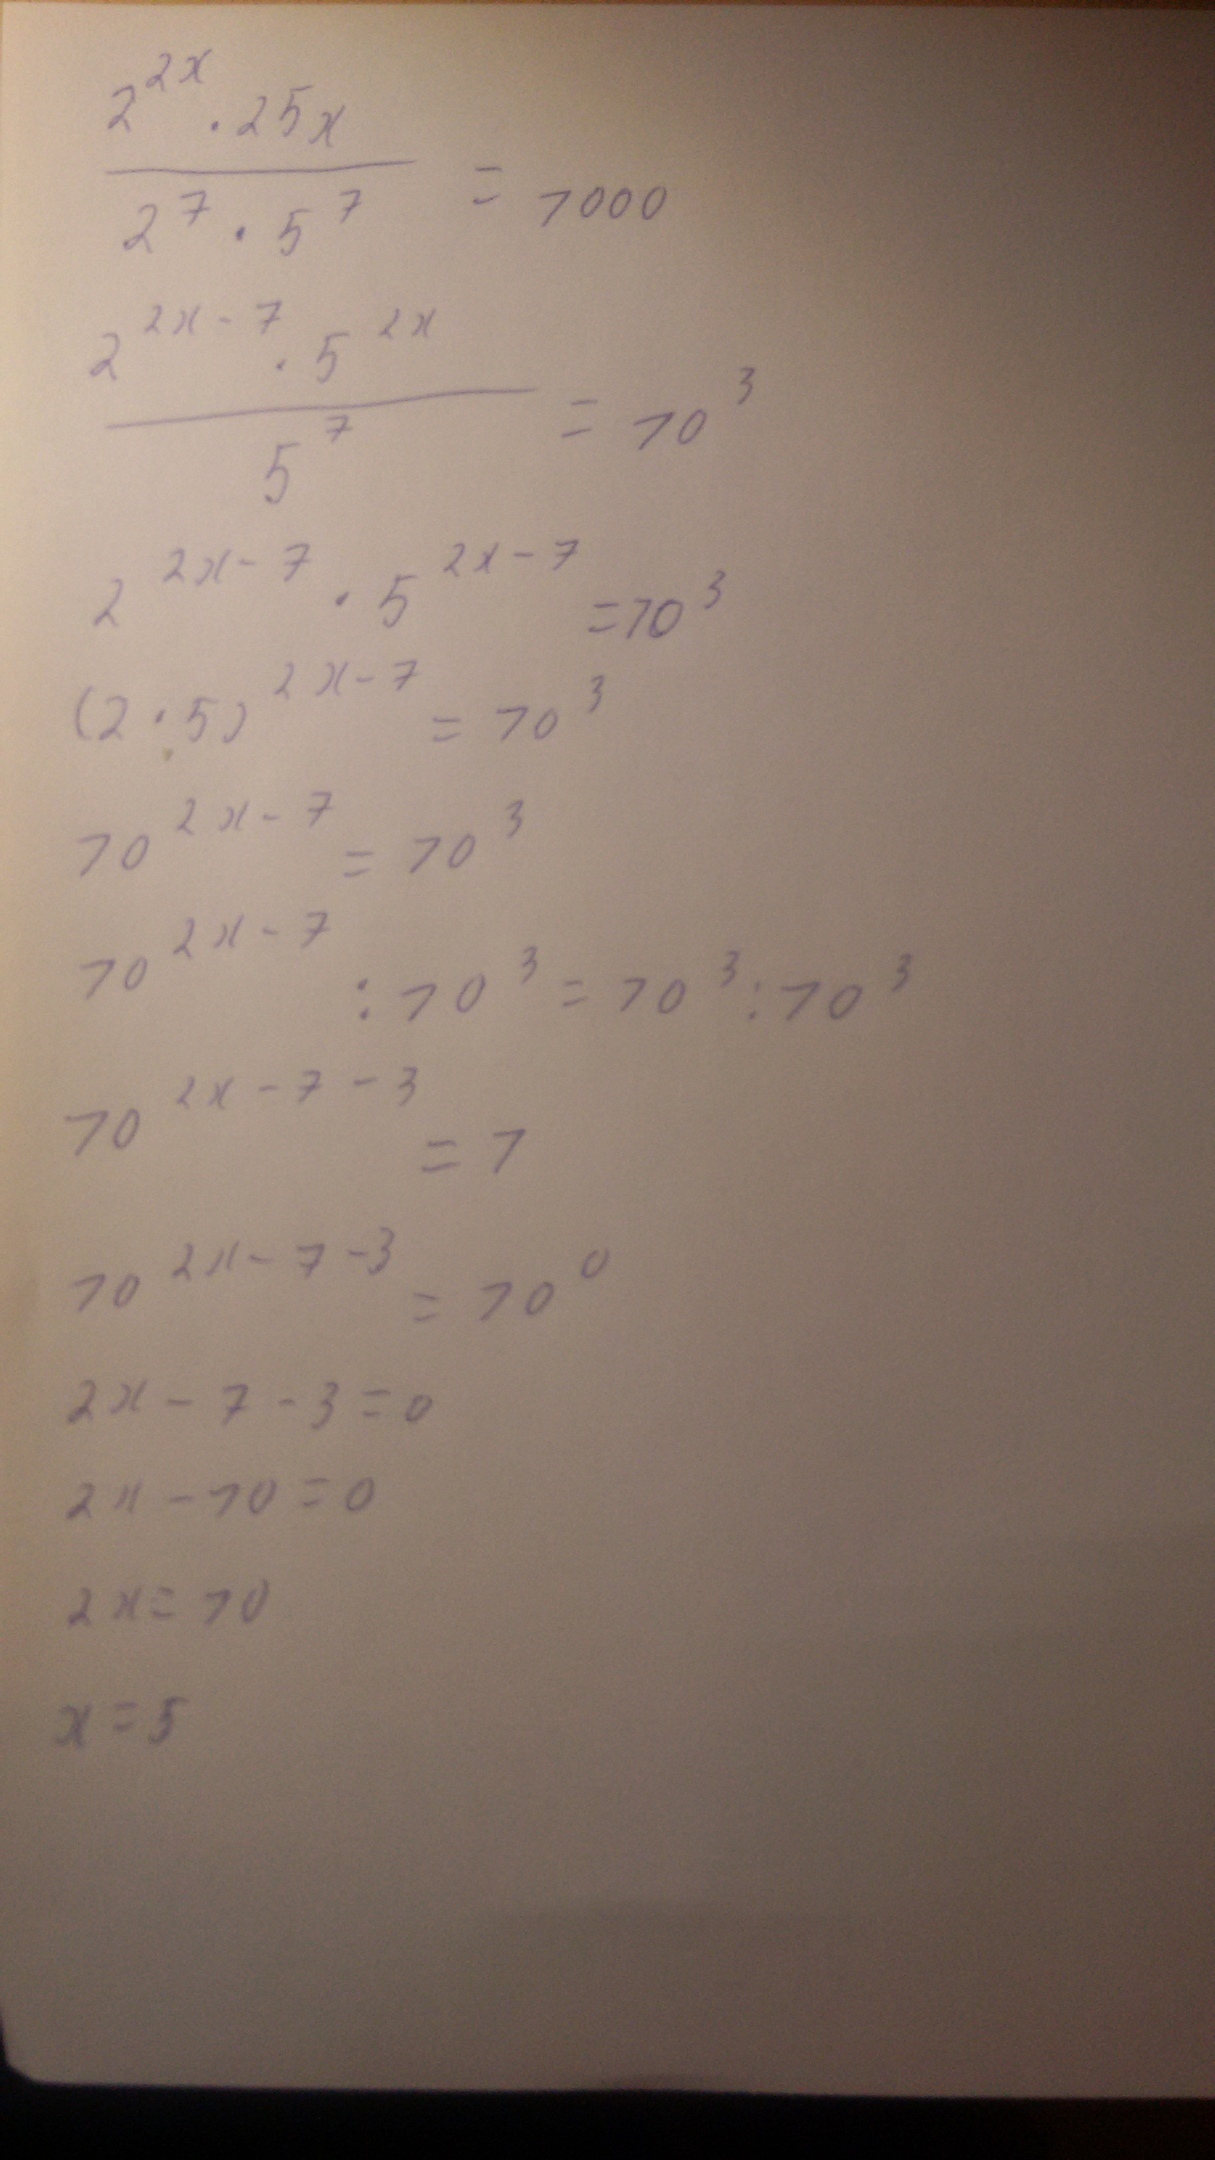 2^(2x) · 25x / (2^7 · 5^7) = 1000
2^(2x-7) · 5^(2x) / 5^7 = 10^3
2^(2x-7) · 5^(2x-7) = 10^3
(2·5)^(2x-7) = 10^3
10^(2x-7) = 10^3
10^(2x-7) : 10^3 = 10^3 : 10^3
10^(2x-7-3) = 1
10^(2x-7-3) = 10^0
2x-7-3=0
2x-10=0
2x=10
x=5